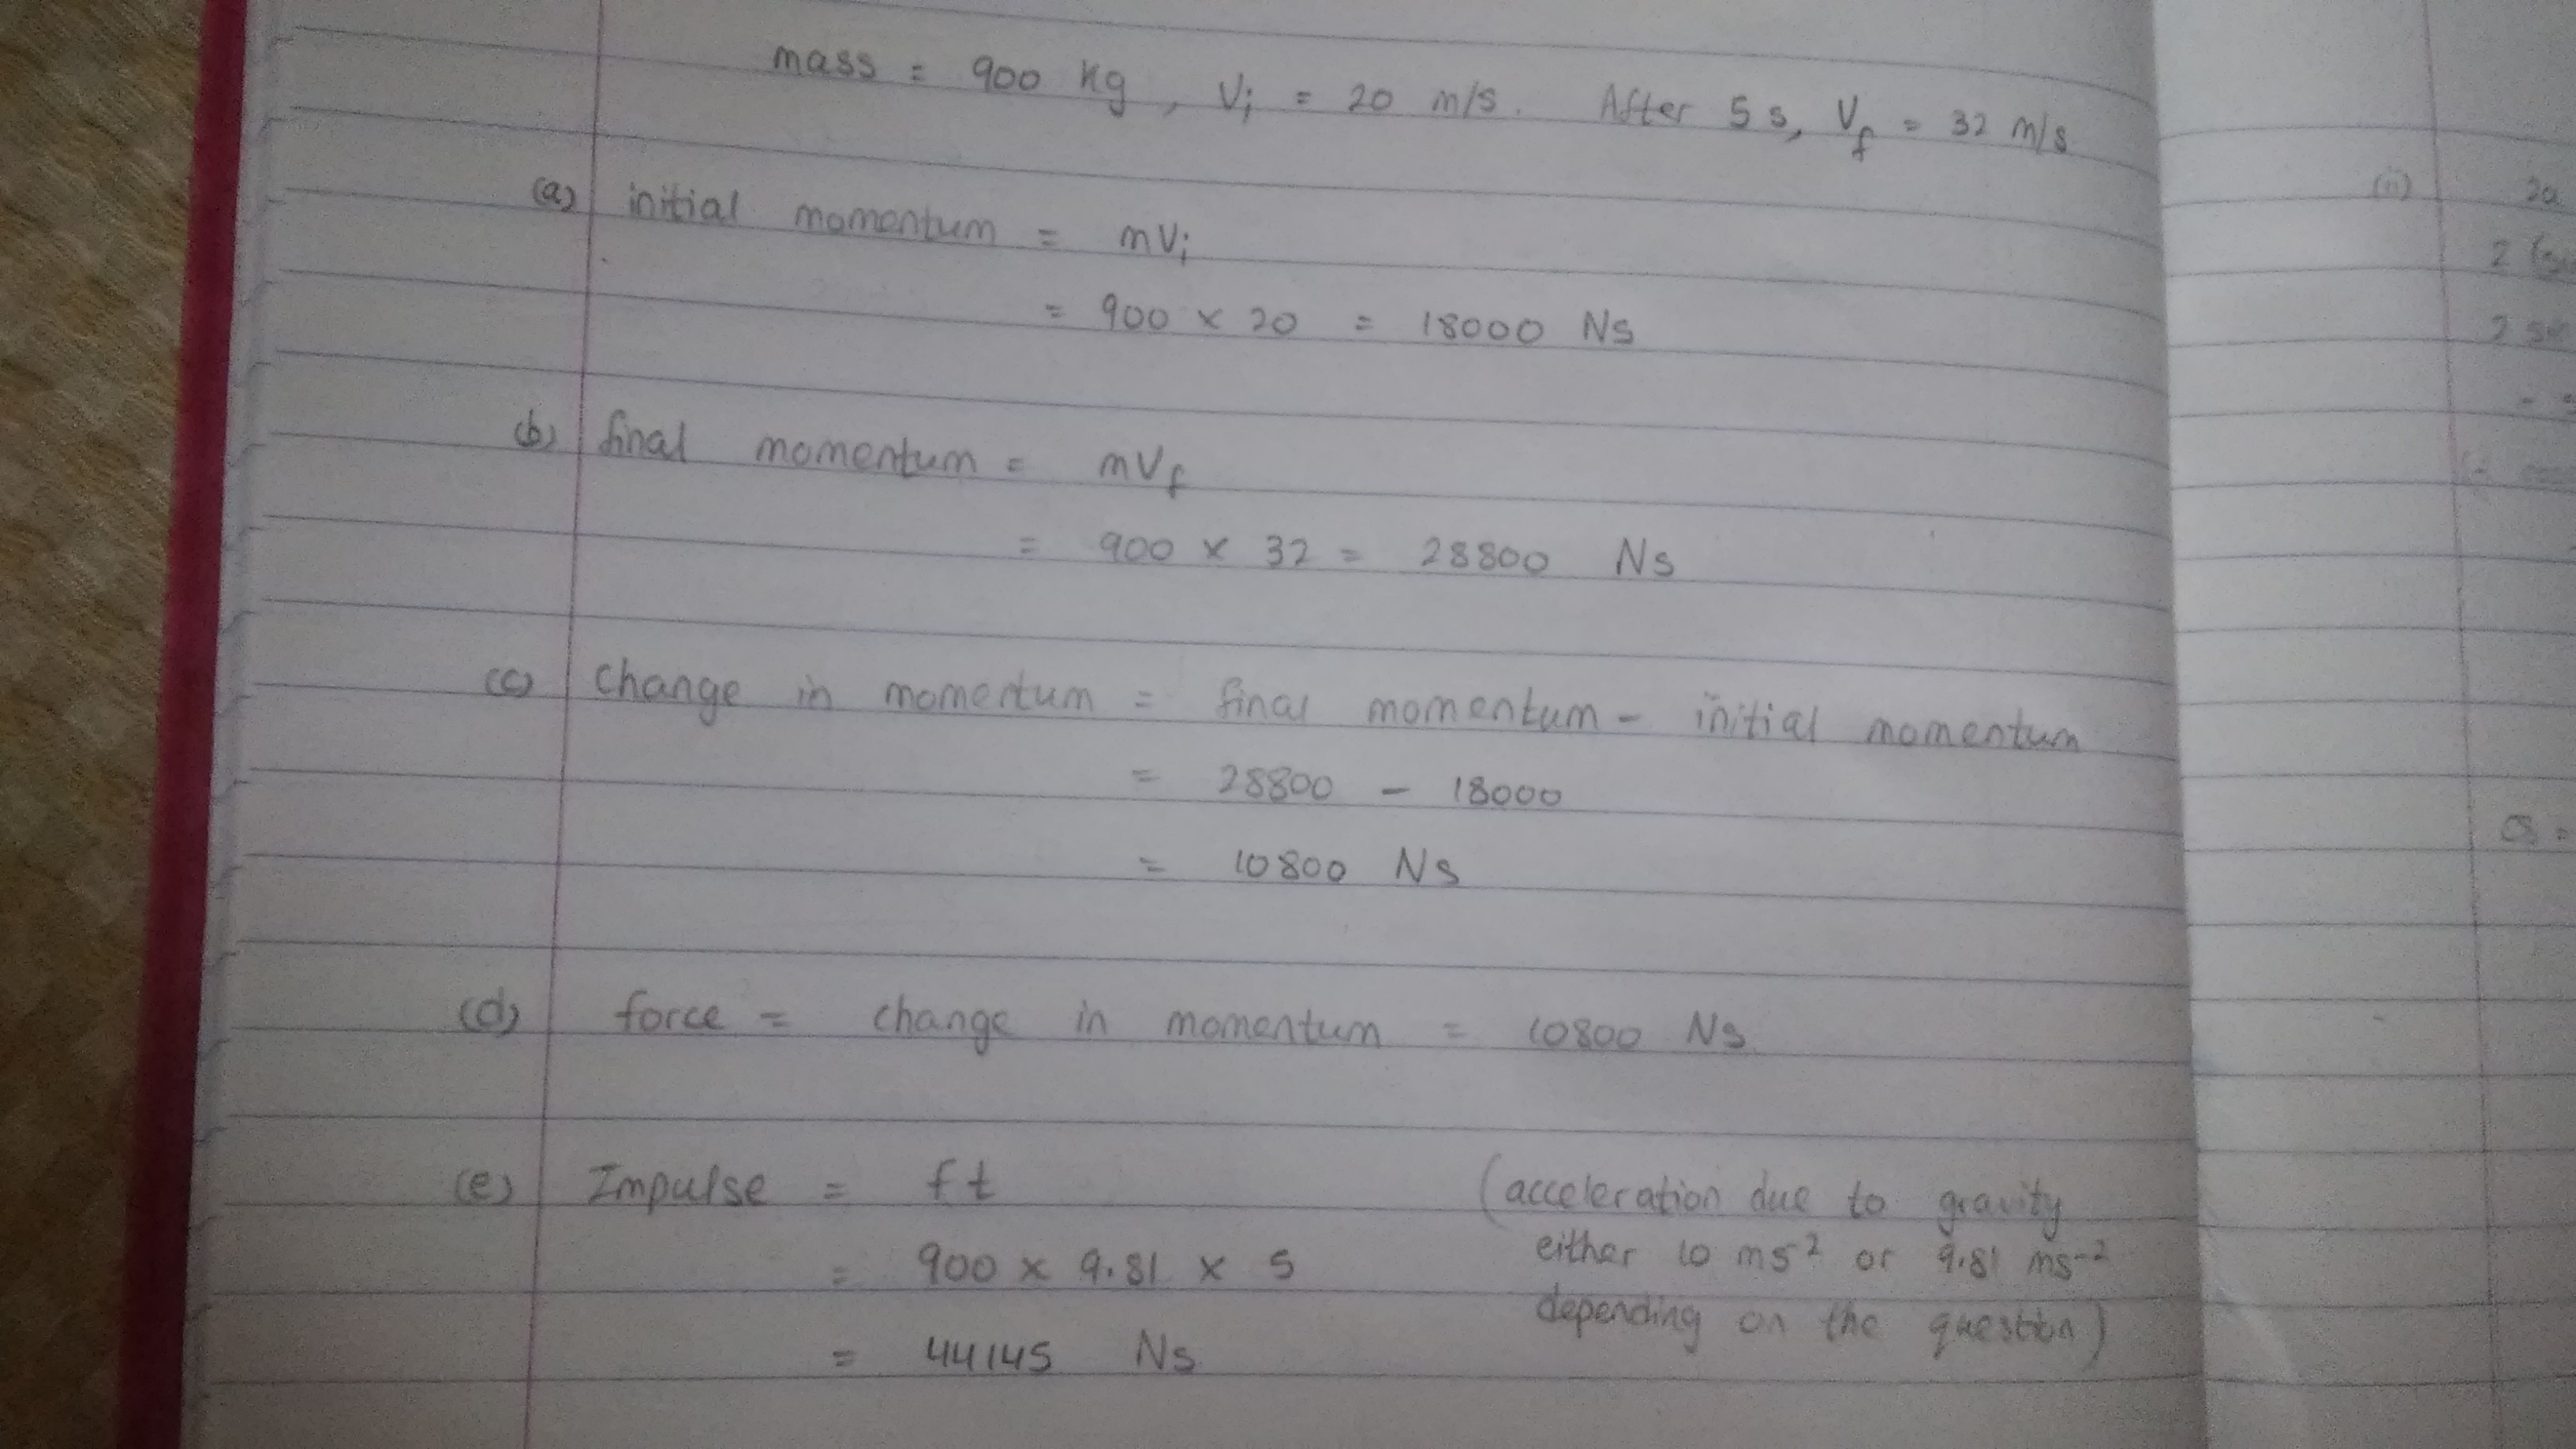 mass = 900 kg, Vi = 20 m/s. After 5 s, Vf = 32 m/s
(a) initial momentum = mVi
= 900 × 20 = 18000 Ns
(b) final momentum = mVf
= 900 × 32 = 28800 Ns
(c) Change in momentum = final momentum - initial momentum
= 28800 - 18000
= 10800 Ns
(d) force = change in momentum = 10800 Ns
(e) Impulse = ft
= 900 × 9.81 × 5
= 44145 Ns
(acceleration due to gravity
either 10 ms⁻² or 9.81 ms⁻²
depending on the question)
(ii) 2a